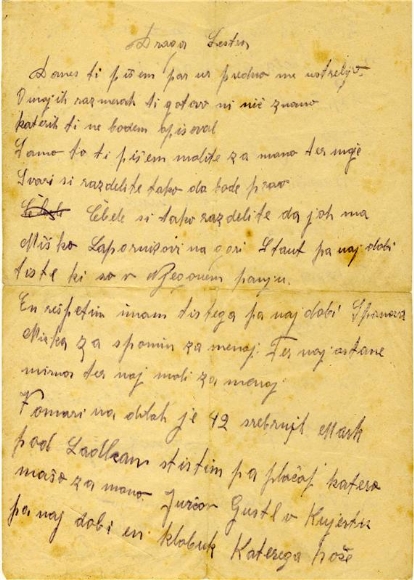 Draga Sestra
Danes ti pišem par ur predno me ustrelijo.
O mojih razmerah ti gotovo ni nič znano
katerih ti ne bodem opisoval
Samo to ti pišem molite za mano ter moje
stvari si razdelite tako da bode prav
Čbele si tako razdelite da jeh ma
Miško na gori Štant pa naj dobi
tiste ki so v Njegovem panju.
En imam tistega pa naj dobi
Mirka za spomin za menoj. Ter naj ostane
mirna ter naj moli za menoj
V omari na dilah je 42 srebrnih Mark
pod s tistim pa plačaj katero
mašo za mano. Gustl v
pa naj dobi en klobuk Katerega hoče